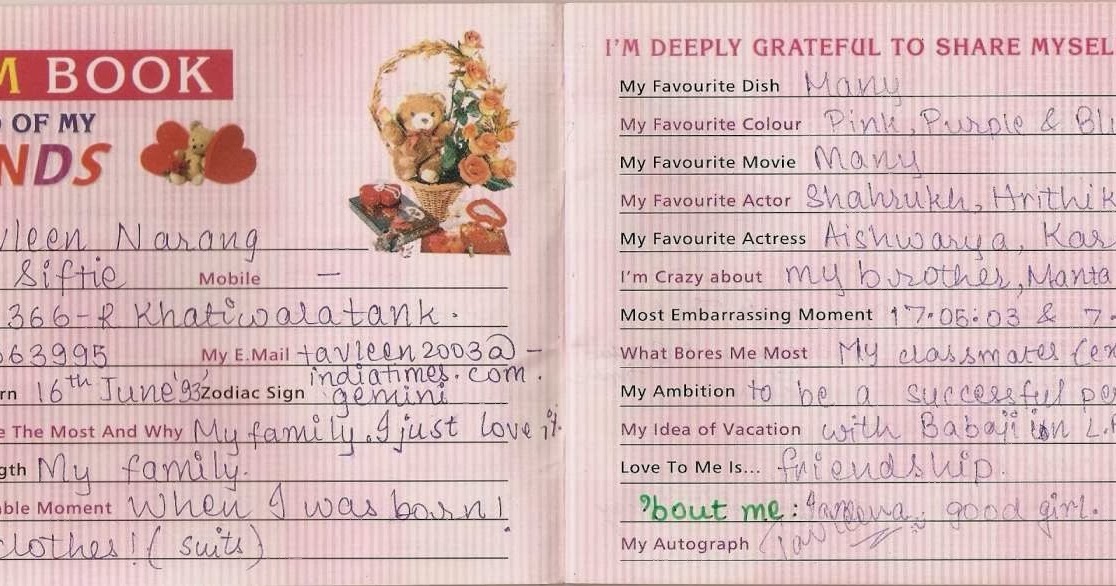 M BOOK
OF MY
NDS
vleen Narang
Siftie Mobile –
366-R Khatiwalatank.
663995 My E.Mail tavleen2003@-
indiatimes.com.
rn 16th June'93 Zodiac Sign gemini
e The Most And Why My family. I just love it.
gth My family.
able Moment When I was born!
clothes! (suits)
I'M DEEPLY GRATEFUL TO SHARE MYSEL
My Favourite Dish Many
My Favourite Colour Pink, Purple & Bl
My Favourite Movie Many
My Favourite Actor Shahrukh, Hrithik
My Favourite Actress Aishwarya, Kar
I'm Crazy about my brother, Manta
Most Embarrassing Moment 17.05.03 & 7.
What Bores Me Most My classmates (ex
My Ambition to be a successful pe
My Idea of Vacation with Babaji in L.
Love To Me Is... friendship.
'bout me: good girl.
My Autograph